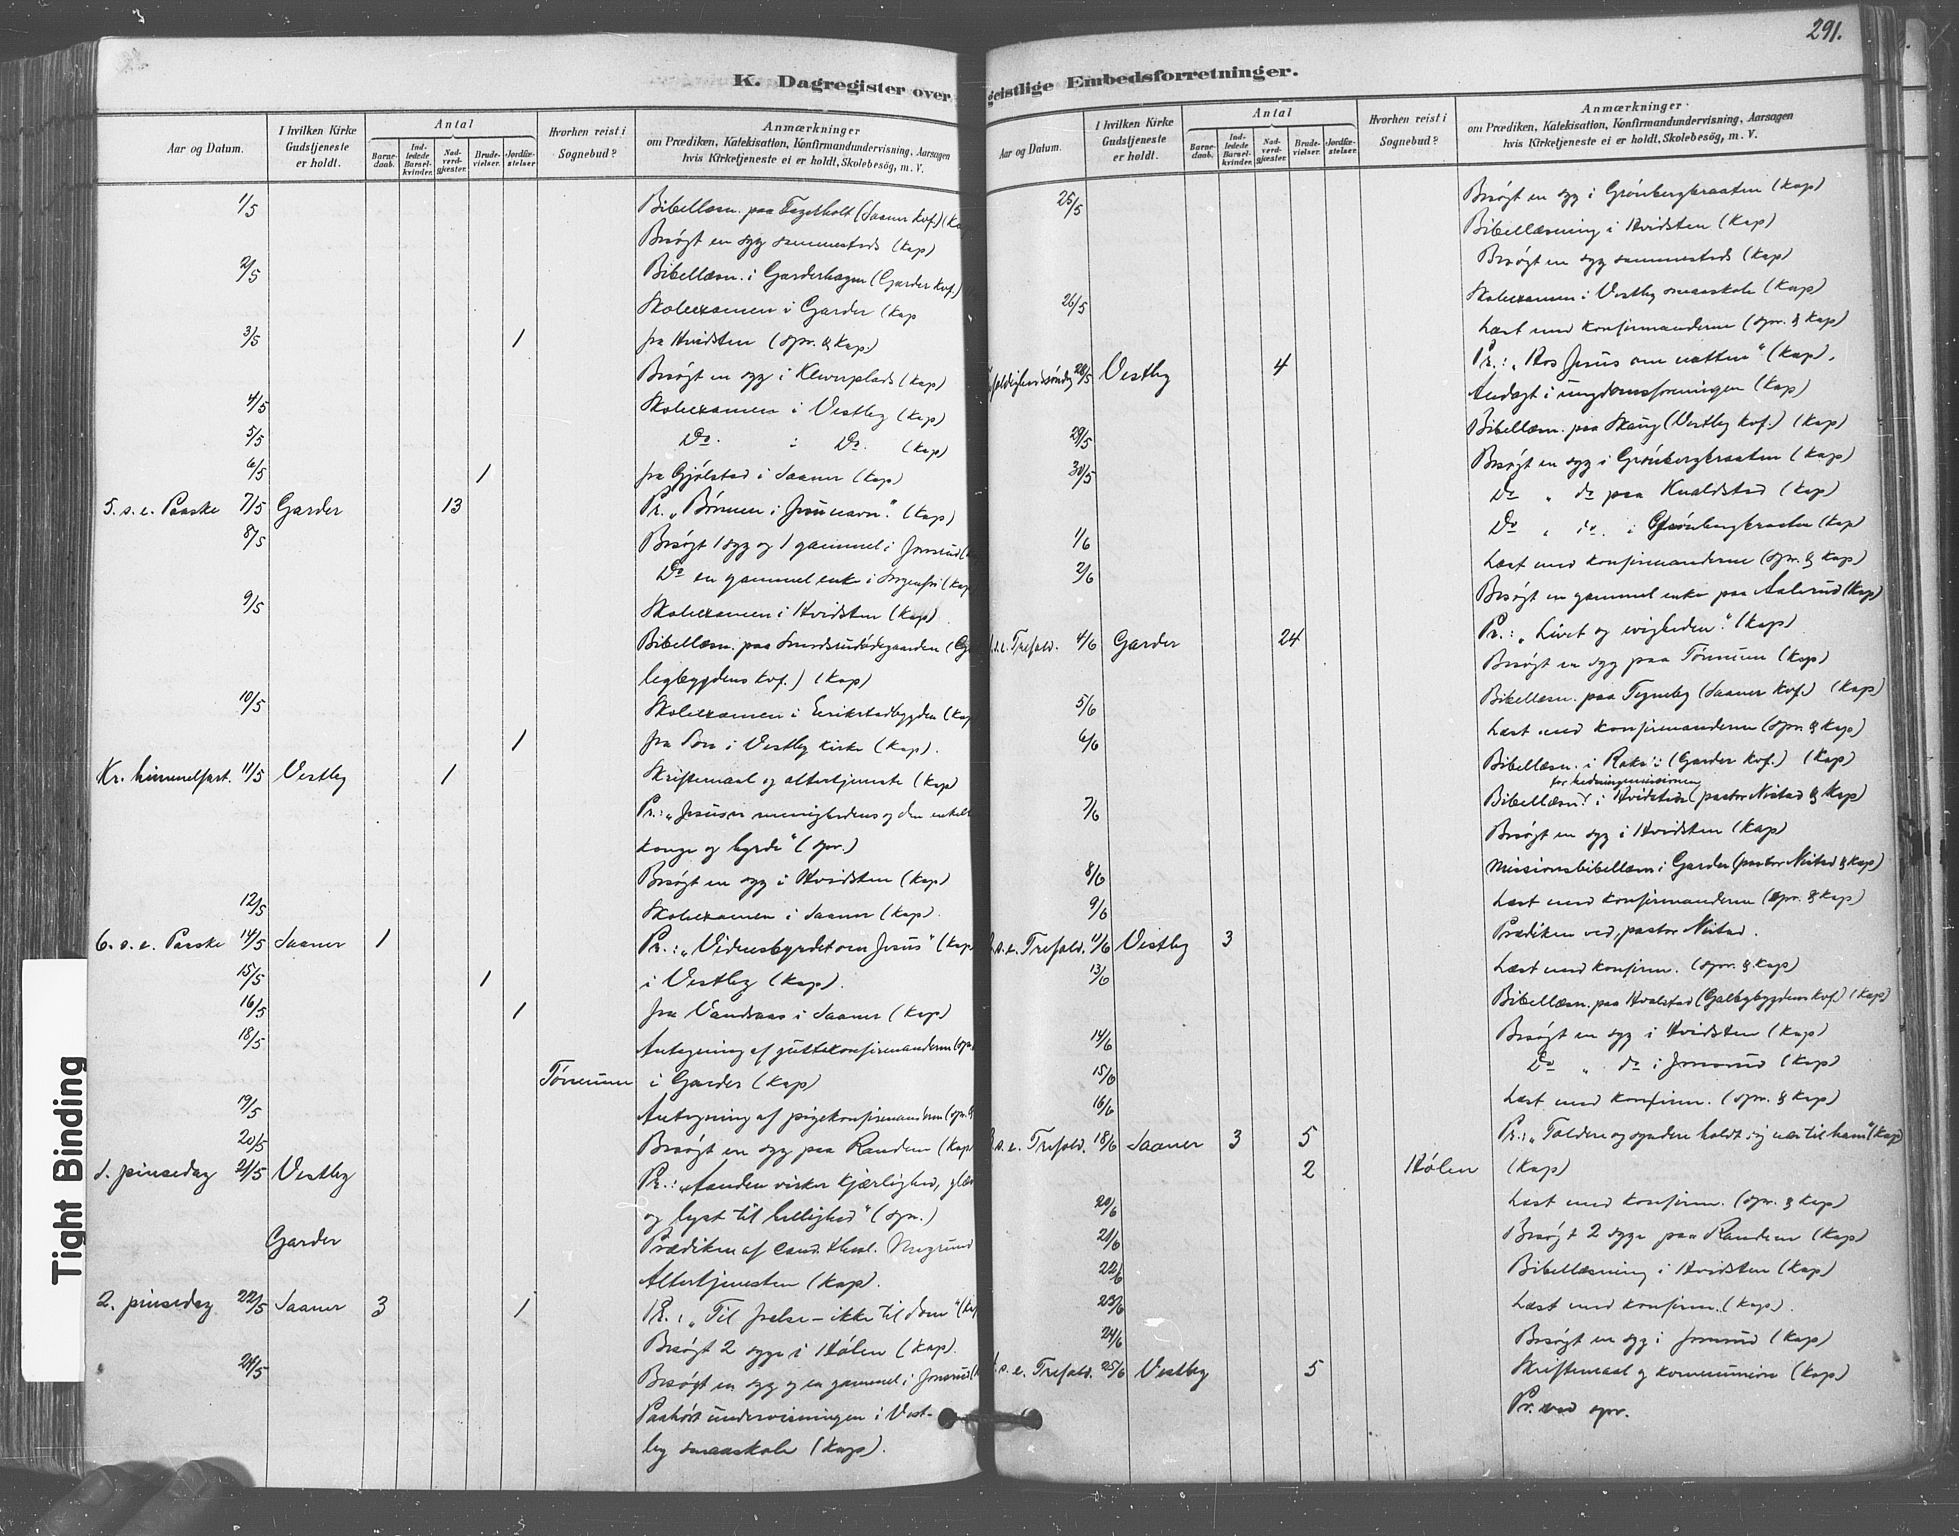 291.
K. Dagregister over geistlige Embedsforretninger.
Aar og Datum.
I hvilken Kirke Gudstjeneste er holdt.
Antal
Barnedaab.
Indledede Barselkvinder.
Nadverdgjæster.
Brudevielser.
Jordfæstelser.
Hvorhen reist i Sognebud?
Anmærkninger
om Prædiken, Katekisation, Konfirmandundervisning, Aarsagen
hvis Kirketjeneste ei er holdt, Skolebesög, m. V.
1/5 Bibellæsn. paa (Saaner Krf.)
Besøgt en syg sammesteds (Kap)
2/5 Bibellæsn. i Garderhagen (Garder Krf.)
Skoleexamen i Garder (Kap
3/5 1 fra Hvidsten (spr. & Kap.)
Besøgt en syg i (Kap)
4/5 Skoleexamen i Vestby (Kap)
5/5 Do. i Do. (Kap)
6/5 1 fra Gjølstad i Saaner (Kap)
5. s. e. Paaske 7/5 Garder 13 Pr. „Bønnen i Jesu navn." (Kap)
8/5 Besøgt 1 syg og 1 gammel i Jonsrud
Do en gammel enke i Sorgenfri (Kap
9/5 Skoleexamen i Hvidsten (Kap)
Bibellæsn. paa
legbygdens Krf.) (Kap)
10/5 Skoleexamen i Eerikstadbygden (Kap
1 fra Son i Vestby Kirke (Kap).
Kr. himmelfart. 11/5 Vestby 1 Skriftemaal og altertjeneste (Kap)
Pr.: „Jesus er menighedens og den enkelt
konge og hyrde" (spr.)
Besøgt en syg i Hvidsten (Kap)
12/5 Skoleexamen i Saaner (Kap).
6. s. e. Paaske 14/5 Saaner 1 Pr.: „Vidnesbyrdet om Jesus" (Kap
15/5 1 i Vestby (Kap).
16/5 1 fra Vandsaas i Saaner (Kap)
18/5 Antegning af guttekonfirmanderne (spr.
Tønnum i Garder (Kap)
19/5 Antegning af pigekonfirmanderne (spr. &
20/5 Besøgt en syg paa Randem (Kap
1. pinsedag 21/5 Vestby Pr.: „Aanden virker kjærlighed, glæ
og lyst til hellighed" (spr.)
Garder Prædiken af cand. theol.
Altertjenesten (Kap).
2. pinsedag 22/5 Saaner 3 1 Pr.: „Til frelse – ikke til dom" (Ka
Besøgt 2 syge i Hølen (Kap).
24/5 Besøgt en syg og en gammel i Jonsrud (
Paahørt undervisningen i Vest-
by smaaskole (Kap).
Aar og Datum.
I hvilken Kirke Gudstjeneste er holdt.
Antal
Barnedaab.
Indledede Barselkvinder.
Nadverdgjæster.
Brudevielser.
Jordfæstelser.
Hvorhen reist i Sognebud?
Anmærkninger
om Prædiken, Katekisation, Konfirmandundervisning, Aarsagen
hvis Kirketjeneste ei er holdt, Skolebesög, m. V.
25/5 Besøgt en syg i Grønbergbraaten (Kap)
Bibellæsning i Hvidsten (Kap)
Besøgt en syg sammesteds (Kap)
26/5 Skoleexamen i Vestby smaaskole (Kap)
Læst med konfirmanderne (spr. & Kap)
foldighedssøndag 28/5 Vestby 4 Pr.: „Hos Jesus om natten" (Kap).
Andagt i ungdomsforeningen (Kap)
29/5 Bibellæsn. paa Skaug (Vestby Krf.) (Kap)
30/5 Besøgt en syg i Grønbergbraaten (Kap)
Do „ do paa Kvaldstad (Kap)
Do „ do. i Grønbergbraaten (Kap)
1/6 Læst med konfirmanderne (spr. & Kap)
2/6 Besøgt en gammel enke paa Aalerud (Kap)
s. e. Trefold. 4/6 Garder 24 Pr.: „Livet og evigheden." (Kap)
Besøgt en syg paa Tønnum (Kap)
5/6 Bibellæsn. paa Tegneby (Saaner Krf.) (Kap)
6/6 Læst med konfirmanderne (spr. & Kap)
Bibellæsn. i (Garder Krf.) (Kap)
for hedningemissionen
7/6 Bibellæsn. i Hvidsten (pastor Nistad & Kap)
Besøgt en syg i Hvidsten (Kap)
8/6 Missionsbibellæsn. i Garder (pastor Nistad & Kap)
9/6 Læst med konfirmanderne (spr. & Kap)
s. e. Trefold. 11/6 Vestby 3 Prædiken ved pastor Nistad.
13/6 Læst med konfirm. (spr. & Kap)
Bibellæsn. paa Hvalstad (Galbybygdens Krf.) (Kap)
14/6 Besøgt en syg i Hvidsten (Kap)
15/6 Do „ do i Jonsrud (Kap)
16/6 Læst med konfirm. (spr. & Kap)
s. e. Trefold. 18/6 Saaner 3 5 Pr.: „Toldere og syndere holdt sig nær til ham" (Kap)
2 Hølen (Kap)
20/6 Læst med konfirm. (spr. & Kap)
21/6 Besøgt 2 syge paa Randem (Kap)
22/6 Bibellæsning i Hvidsten (Kap)
23/6 Læst med konfirm. (Kap).
24/6 Besøgt en syg i Jonsrud (Kap)
s. e. Trefold. 25/6 Vestby 5 Skriftemaal og kommunion (Kap)
Pr. ved spr.
Tight Binding